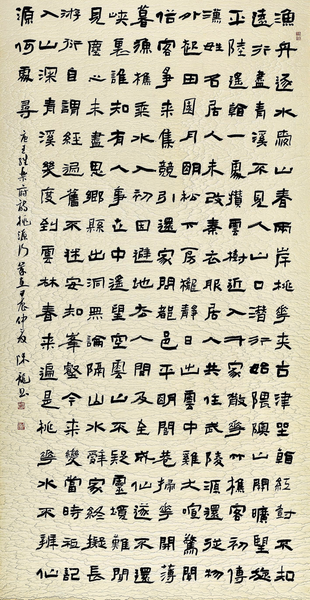 漁舟逐水愛山春兩岸桃華夾古津坐看紅樹不知
遠行盡青溪不見人山口潛行始隈隩山開曠望旋
平陸遙看一處攢雲樹近入千家散華竹樵客初傳
漢姓名居人未改秦衣服居人共住武陵源還從物
外起田園月明松下房櫳靜日出雲中雞犬喧驚聞
俗客爭來集競引還家問都邑平明閭巷掃華開薄
暮漁樵乘水入初因避地去人間及至成仙遂不還
峽裏誰知有人事世中遙望空雲山不疑靈境難聞
見塵心未盡思鄉縣出洞無論隔山水辭家終擬長
游衍自謂經過舊不迷安知峯壑今來變當時祗記
入山深青溪幾度到雲林春來遍是桃華水不辨仙
源何處尋
唐王維樂府詩桃源行 甲辰仲夏 陳龍